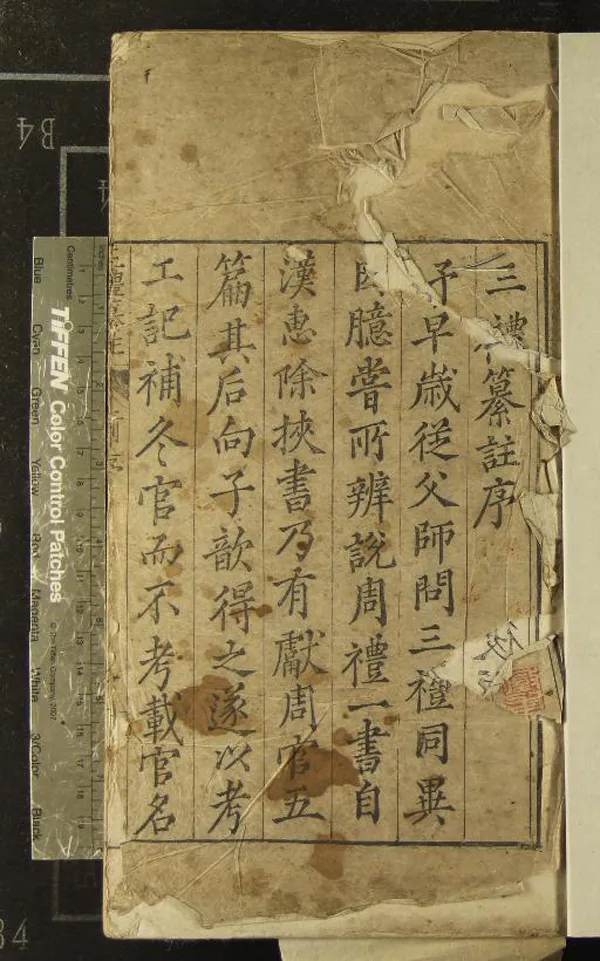 三禮纂註序
予早歲從父師問三禮同異
臆嘗所辨說周禮一書自
漢惠除挾書乃有獻周官五
篇其后向子歆得之遂以考
工記補冬官而不考載官名
禮纂註
B4
Inches
Centimetres
TIFFEN Color Control Patches
© The Tiffen Company, 2007
Blue
Cyan
Green
Yellow
Red
Magenta
White
3/Color
Black
B4